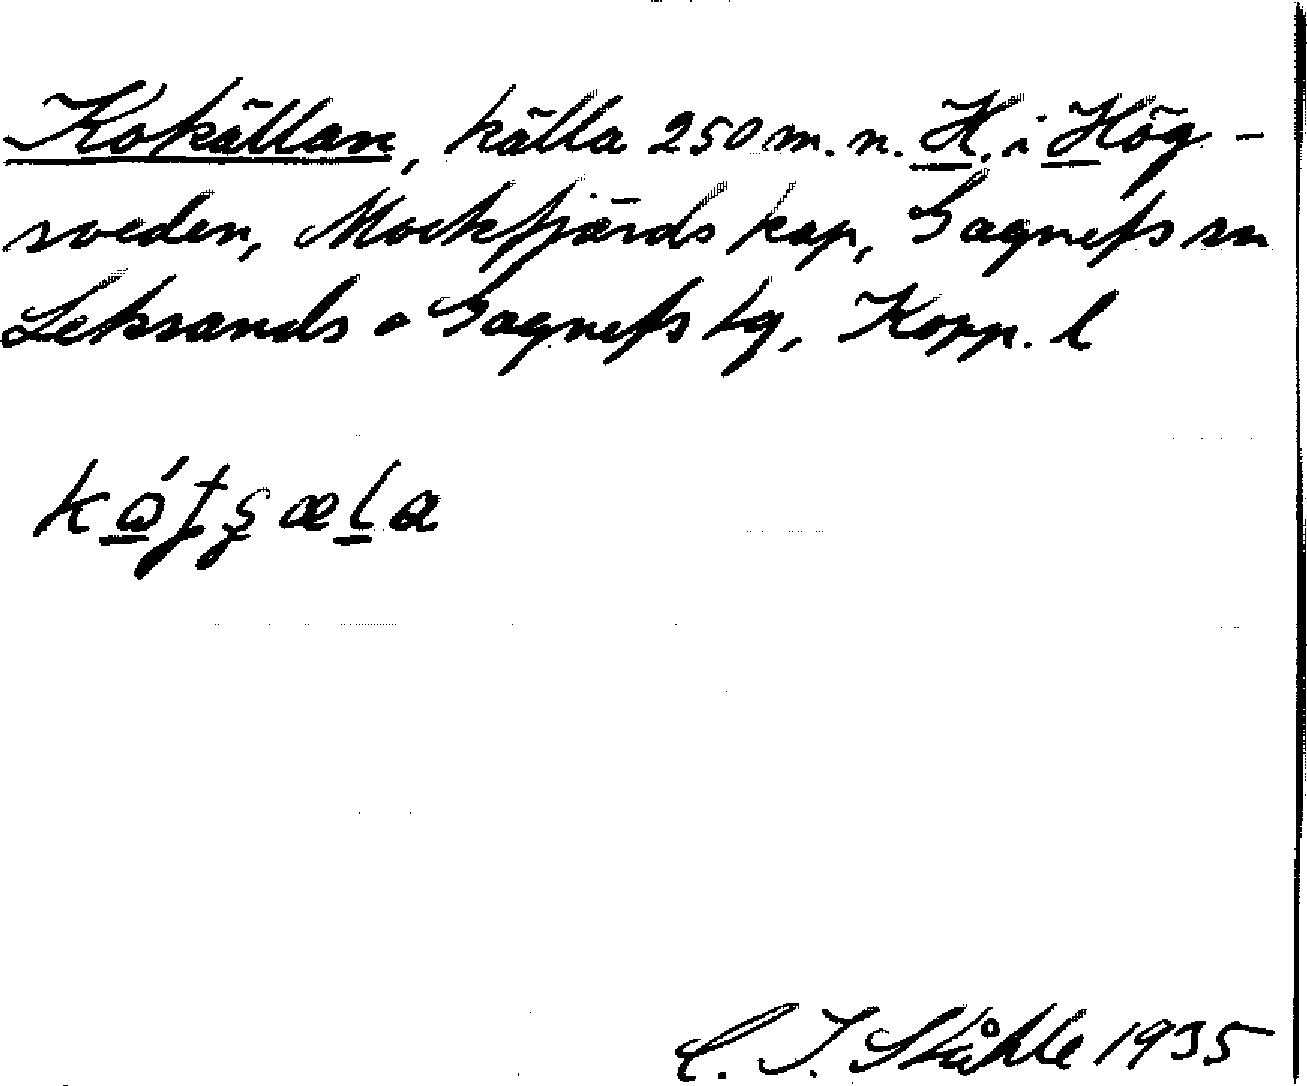 Kokällan, källa 250 m. n. H. i Hög-
sveden, Mockfjärds kap, Gagnefs sn
Leksands o Gagnefs tg, Kopp. l
C. I. Ståhle 1935